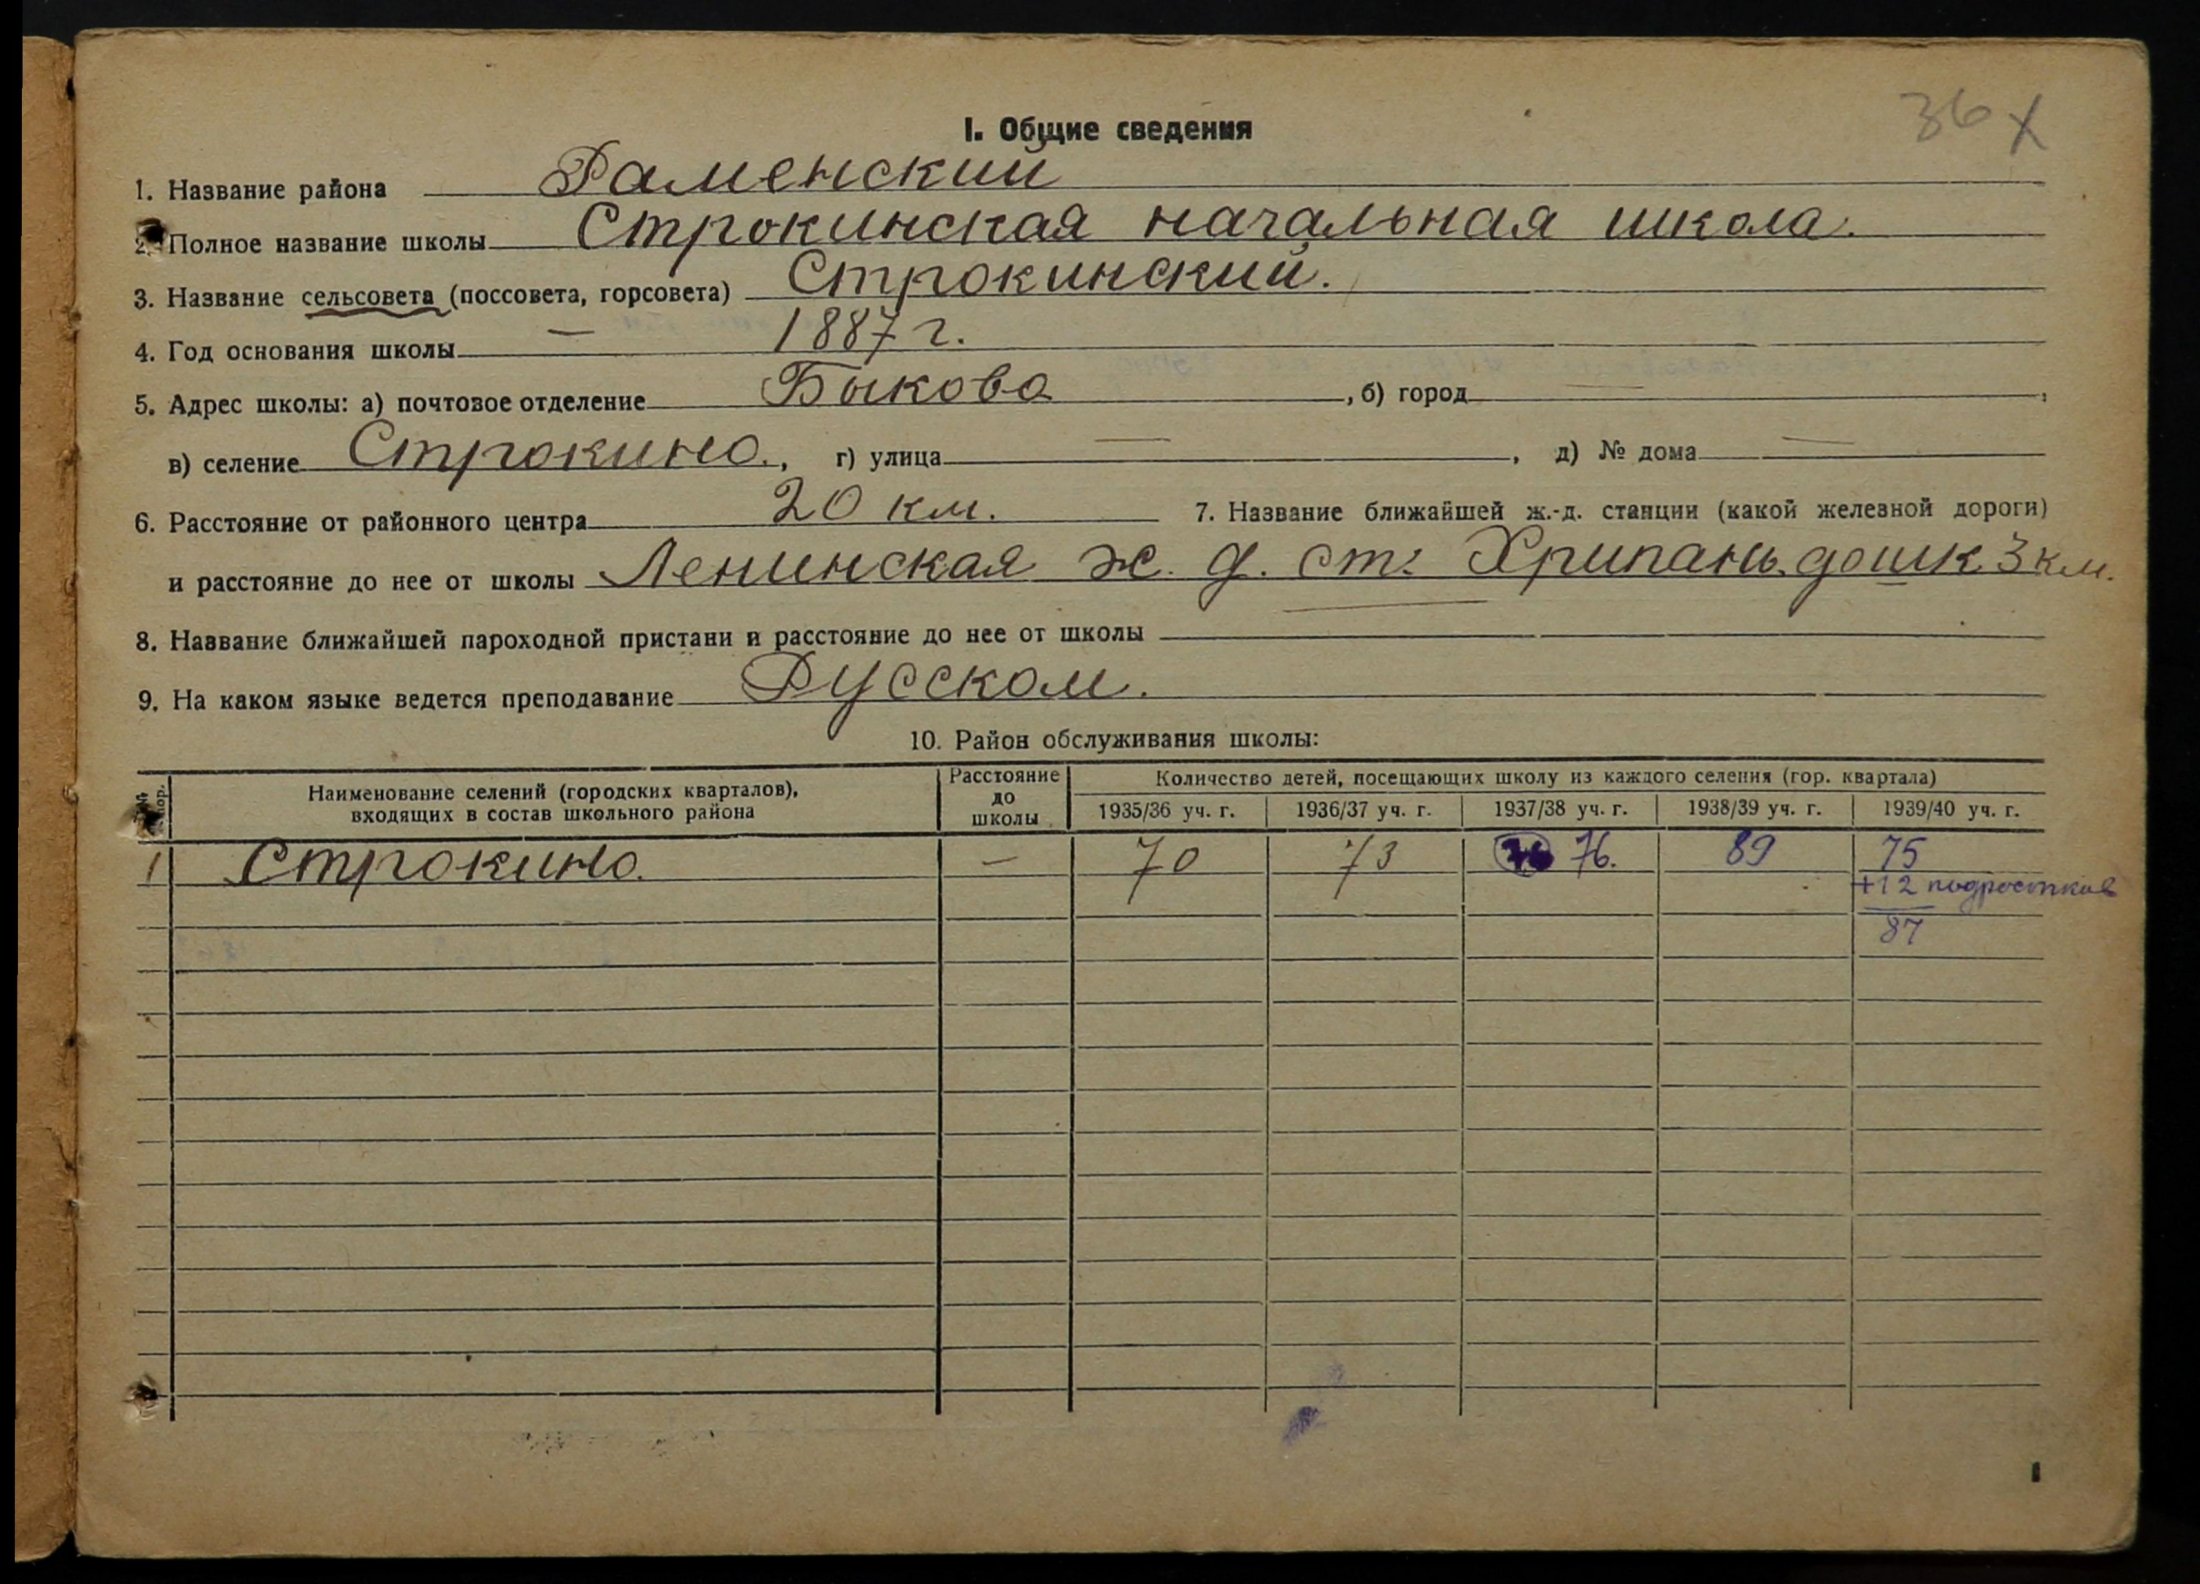 36 х
I. Общие сведения
1. Название района Раменский
2. Полное название школы Строкинская начальная школа.
3. Название сельсовета (поссовета, горсовета) Строкинский.
4. Год основания школы — 1887 г.
5. Адрес школы: а) почтовое отделение Быково , б) город — ,
в) селение Строкино., г) улица — , д) № дома —
6. Расстояние от районного центра 20 км. 7. Название ближайшей ж.-д. станции (какой железной дороги)
и расстояние до нее от школы Ленинская ж. д. ст. Хрипань 3 км.
8. Название ближайшей пароходной пристани и расстояние до нее от школы —
9. На каком языке ведется преподавание Русском.
10. Район обслуживания школы:
Наименование селений (городских кварталов), входящих в состав школьного района Расстояние до школы Количество детей, посещающих школу из каждого селения (гор. квартала)
1935/36 уч. г. 1936/37 уч. г. 1937/38 уч. г. 1938/39 уч. г. 1939/40 уч. г.
1 Строкино. — 70 73 76. 89 75
+12 подростков
87
1